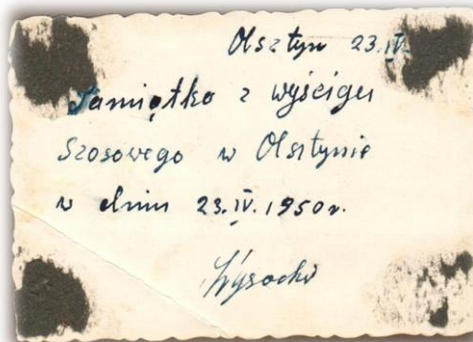 Olsztyn 23.IV.
Pamiątka z wyścigu
Szosowego w Olsztynie
w dniu 23.IV.1950r.
Wysocki